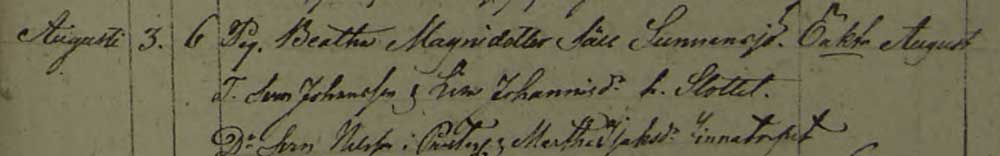 Augusti 3. 6 Pig. Beatha Magnidotter Säll Sunnansjö. Oäkta August
T. Sven Johansson & Lisa Johannisdr h. Slottet.
Dr Sven Nilsson i & Martha Isaksdr innatorpet